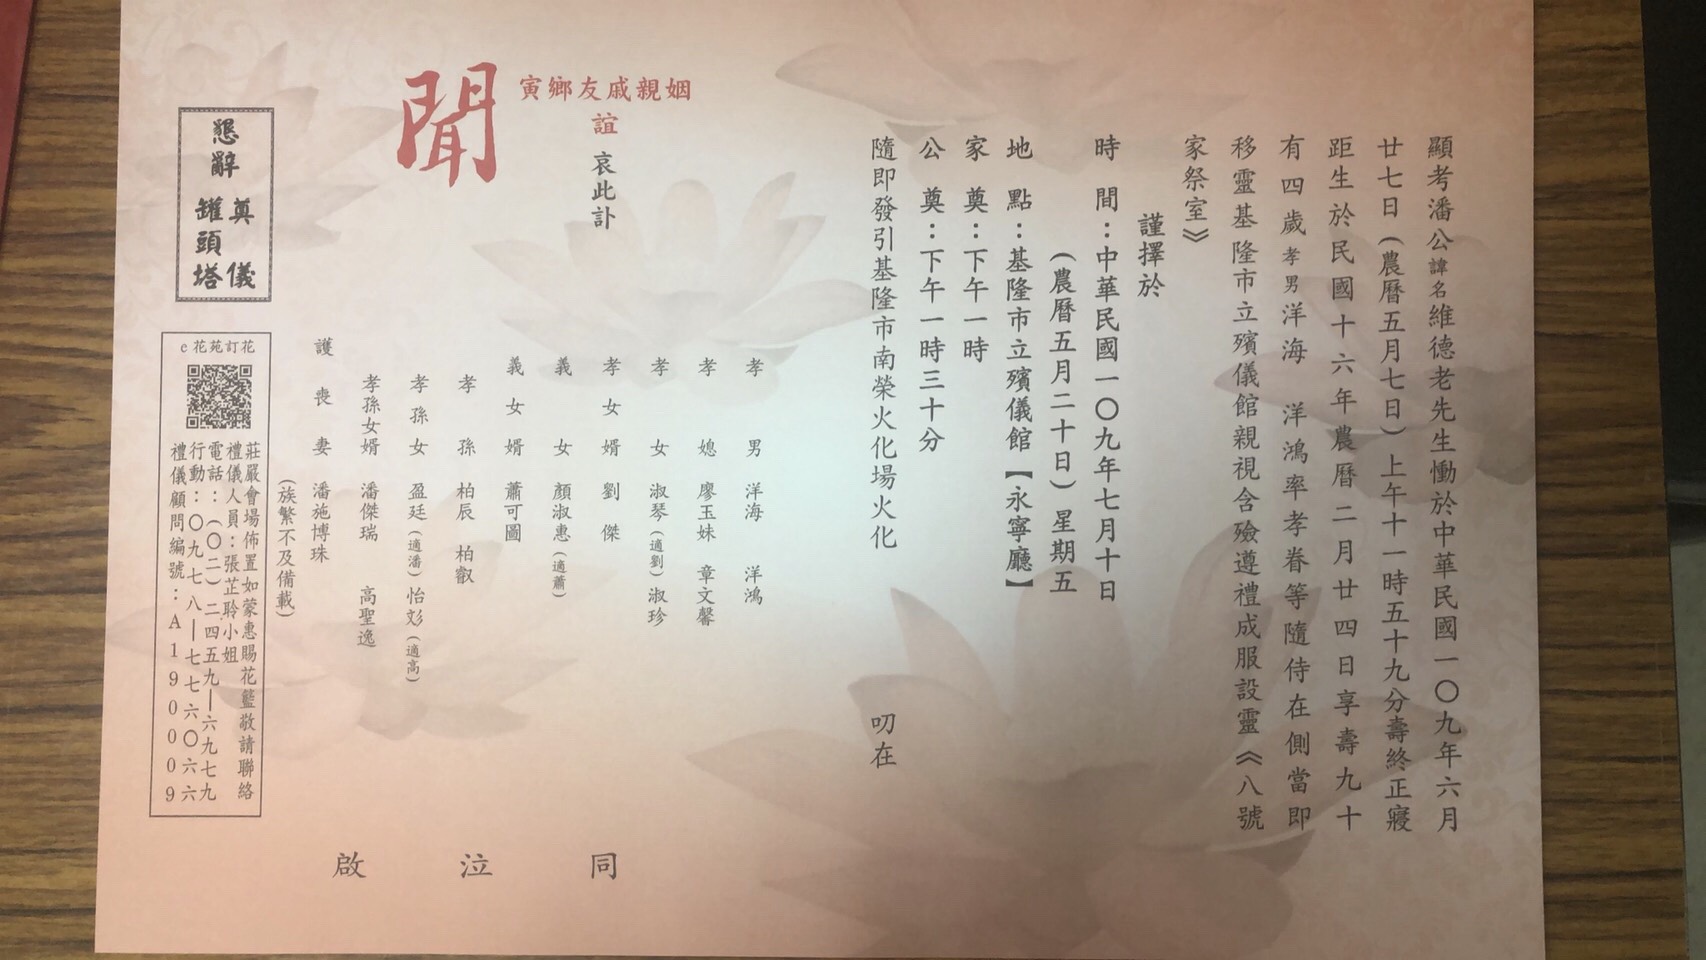 顯考潘公諱名維德老先生慟於中華民國一〇九年六月
廿七日(農曆五月七日)上午十一時五十九分壽終正寢
距生於民國十六年農曆二月廿四日享壽九十
有四歲孝男洋海 洋鴻率孝眷等隨侍在側當即
移靈基隆市立殯儀館親視含殮遵禮成服設靈《八號
家祭室》
謹擇於
時 間:中華民國一〇九年七月十日
(農曆五月二十日)星期五
地 點:基隆市立殯儀館【永寧廳】
家 奠:下午一時
公 奠:下午一時三十分
隨即發引基隆市南榮火化場火化 叨在
孝 男 洋海 洋鴻
孝 媳 廖玉妹 章文馨
孝 女 淑琴(適劉)淑珍
孝女婿 劉 傑
義 女 顏淑惠(適蕭)
義女婿 蕭可圖
孝 孫 柏辰 柏叡
孝孫女 盈廷(適潘)怡彣(適高)
孝孫女婿 潘傑瑞 高聖逸
護喪妻 潘施博珠
(族繁不及備載)
同泣啟
姻親戚友鄉寅
誼
哀此訃
聞
懇辭 奠儀
罐頭塔
e花苑訂花
莊嚴會場佈置如蒙惠賜花籃敬請聯絡
禮儀人員:張芷聆小姐
電話:(〇二)二四五九—六九七九
行動:〇九七八—七七六〇六六
禮儀顧問編號:A190009